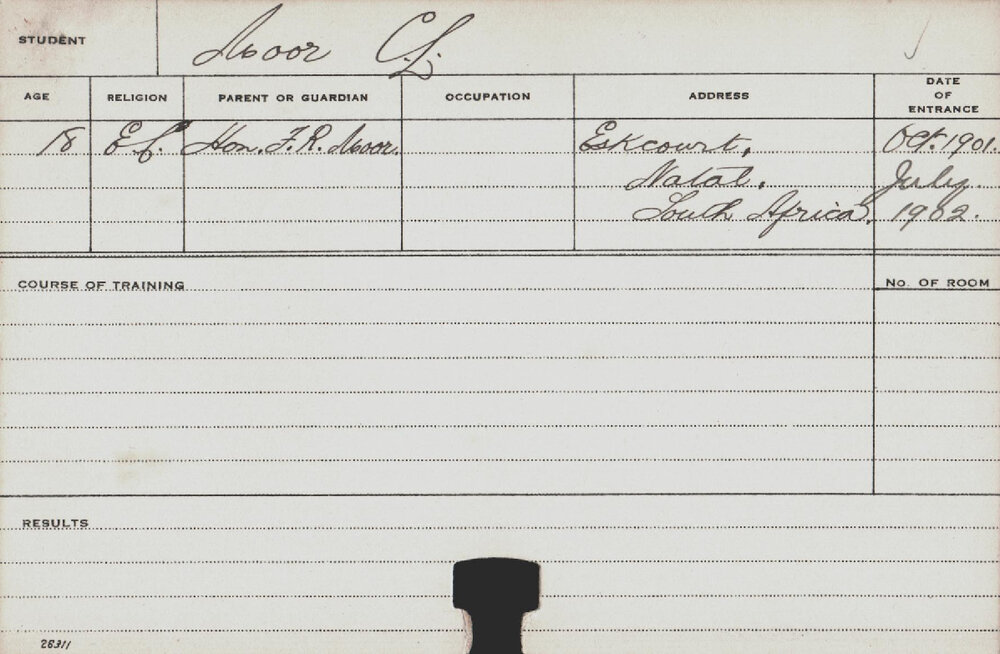 STUDENT Moor C. L.
AGE RELIGION PARENT OR GUARDIAN OCCUPATION ADDRESS DATE OF ENTRANCE
18 E.C. Hon. F. R. Moor. Eskcourt, Oct. 1901.
Natal, July
South Africa. 1902.
COURSE OF TRAINING No. OF ROOM
RESULTS
26311